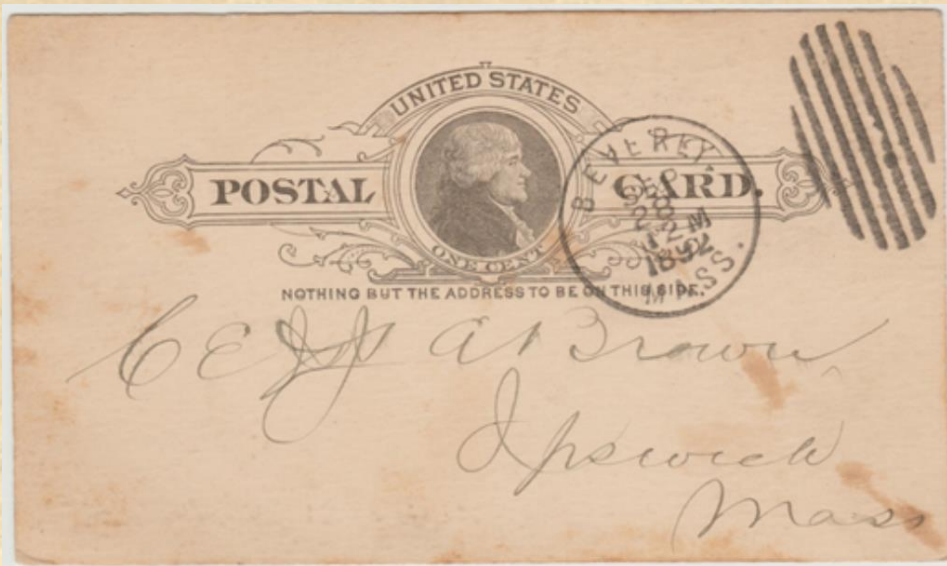 UNITED STATES
POSTAL CARD.
ONE CENT
NOTHING BUT THE ADDRESS TO BE ON THIS SIDE.
BEVERLY
SEP
28
12 M
1892
MASS.
A Brown
Ipswich
Mass